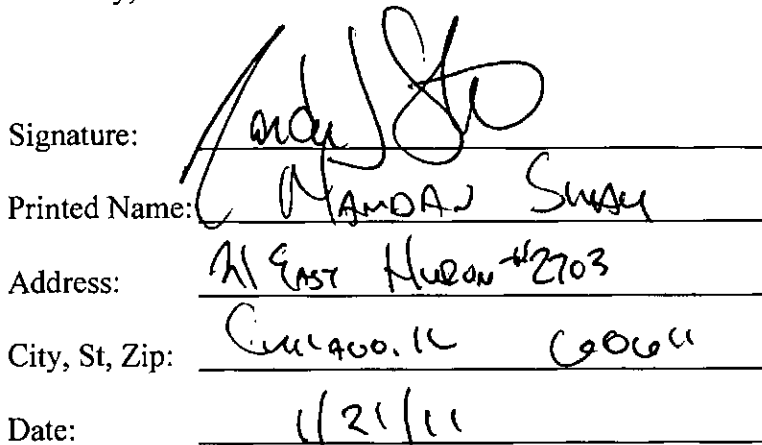 Signature:
Printed Name: NANDAN SHAH
Address: 21 EAST HURON #2703
City, St, Zip: CHICAGO. IL 60611
Date: 1/21/11